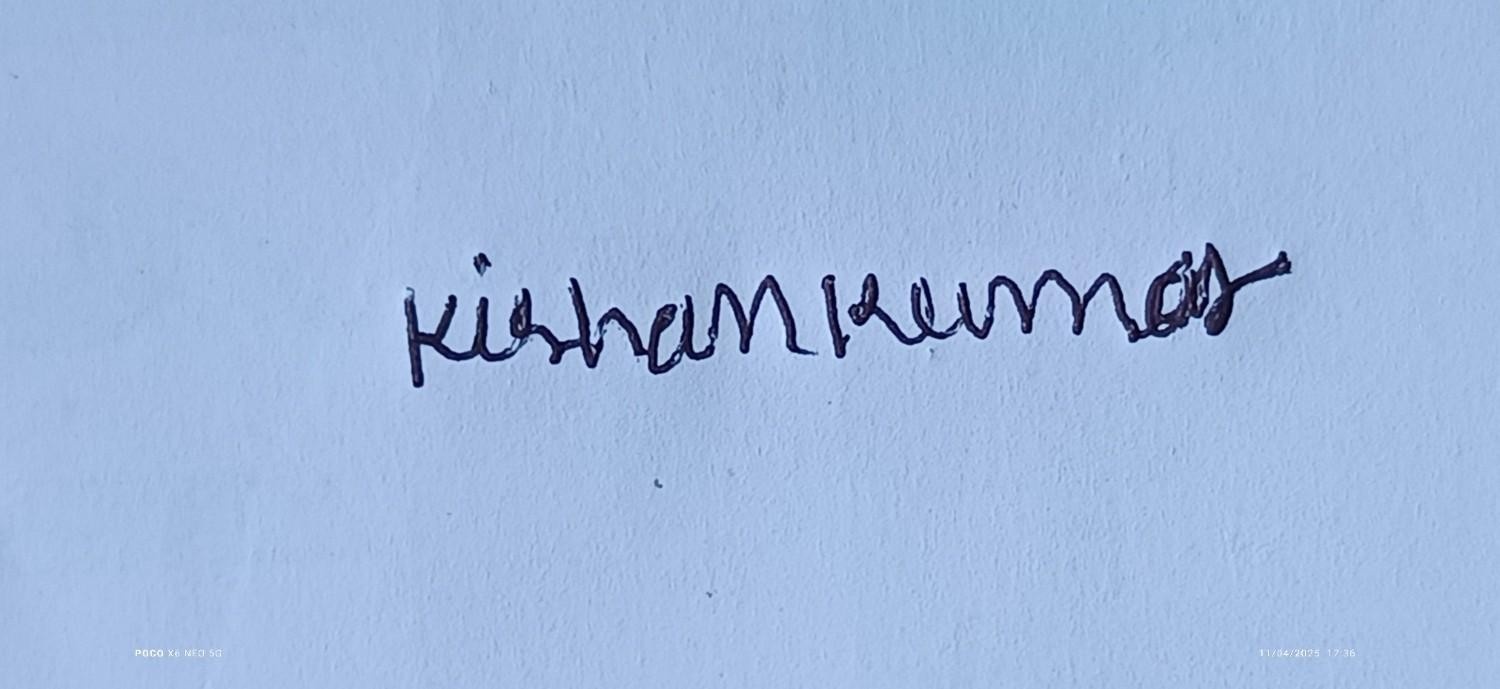 Kishan Kumar
POCO X6 NEO 5G
11/04/2025 17:36